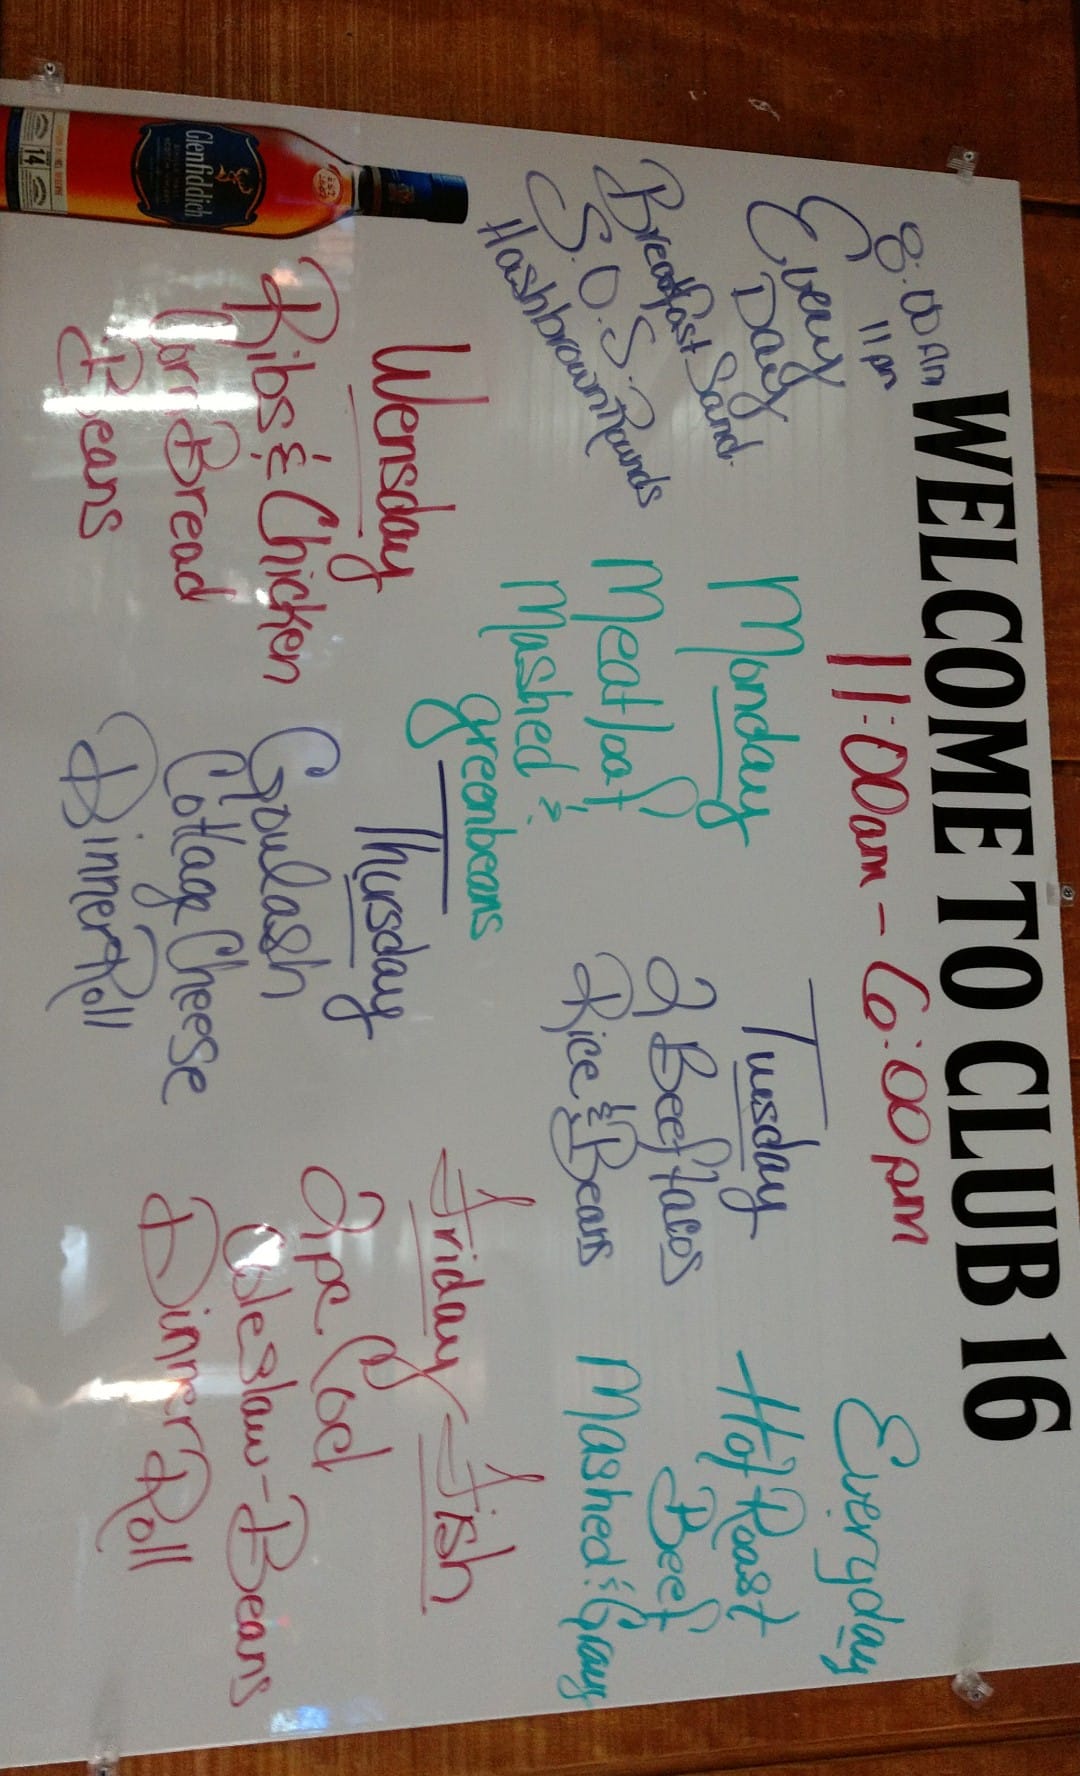 WELCOME TO CLUB 16
8:00 Am
11 pm
Every
Day
Breakfast Sand.
S.O.S.
Hashbrown Rounds
11:00am - 6:00pm
Monday
Meatloaf
Mashed &
greenbeans
Tuesday
2 Beef Tacos
Rice & Beans
Everyday
Hot Roast
Beef
Mashed & Gravy
Wensday
Ribs & Chicken
Corn Bread
Beans
Thursday
Goulash
Cottage Cheese
Dinner Roll
Friday - Fish
2 pc. Cod
Coleslaw - Beans
Dinner Roll
Glenfiddich
14